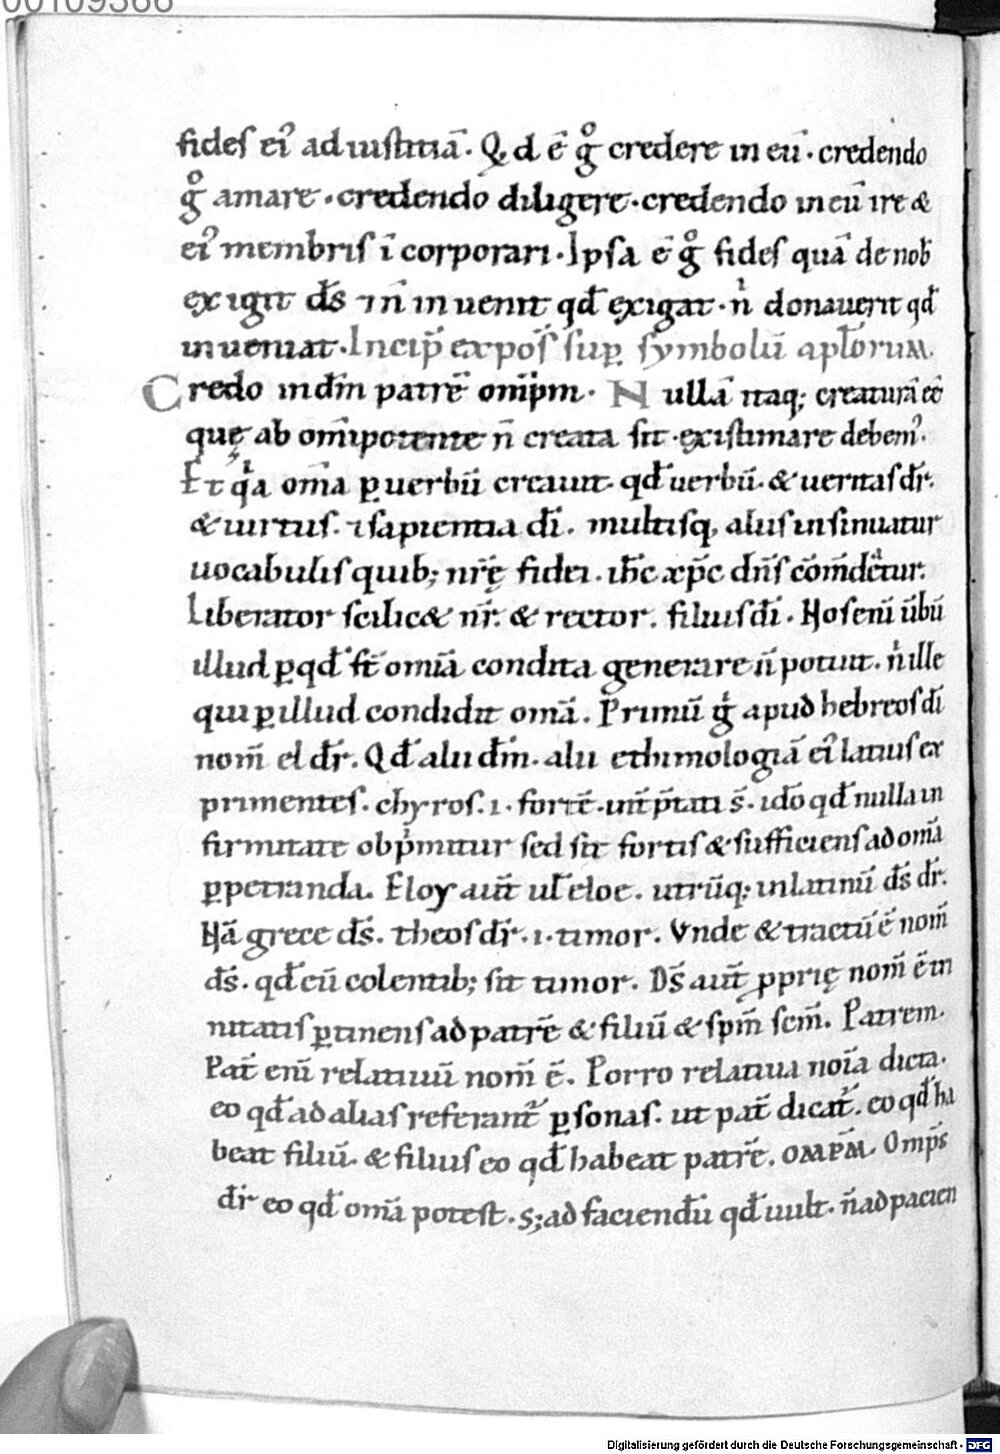 00109366
fides ei᷒ ad iustitiā. Q, d ē gͦ credere in eū. credendo
gͦ amare. credendo diligere. credendo in eū ire &
ei᷒ membris ī corporari. Ipsa ē gͦ fides quā de nob̄
exigit d̄s ⁊ n̄ inuenit qd̄ exigat. nͥ donauerit qd̄
inueniat. Incip̄ expos̄ sup̱ symbolū apl̄orum.
Credo in dm̄ patrē omīpm. Nullā itaq; creaturā ee᷒
quę ab omīpotente n̄ creata sit. existimare debem᷒.
Et qͥa om̄a ꝑ uerbū creauit. qd̄ uerbū. & ueritas dr̄.
& uirtus. ⁊ sapientia dī. multisq, aliis insinuatur
uocabulis quib; nr̄ę fidei. ih̄c xp̄c dn̄s com̄dat̄ur.
Liberator scilic& nr̄. & rector. filius dī. No seni᷒ ūbū
illud ꝑ qd̄ st̄ omīa condita generare n̄ potuit. nͥ ille
qui ꝑ illud condidit om̄a. Primū gͥ apud hebreos dī
nom̄ el dr̄. Qd̄ alii dm̄. alii ethimologiā ei᷒ latius ex
primentes. chyros. i. fortē int̄ p̄tati s̄. idō qd̄ nulla in
firmitate obpͥmitur sed sit fortis & sufficiens ad om̄a
ꝑpetranda. Eloy aut̄ ul̄ eloe. utrūq; in latinū d̄s dr̄.
Nā grece d̄s. theos dr̄. i. timor. Vnde & tractū ē nom̄
d̄s. qd̄ eū colentib; sit timor. D̄s aut̄ ꝓprię nom̄ ē tri
nitatis ꝑtinens ad patrē & filiū & spm̄ scm̄. Patrem.
Pat̄ eni᷒ relatiuū nom̄ ē. Porro relatiua noīa dicta.
eo qd̄ ad alias referant᷑ ꝑsonas. ut pat̄ dicat᷑. eo qd̄ ha
beat filiū. & filius eo qd̄ habeat patrē. OMPM. Omp̄s
dr̄ eo qd̄ om̄a potest. s; ad faciendū qd̄ uult. n̄ ad pacien
Digitalisierung gefördert durch die Deutsche Forschungsgemeinschaft - DFG